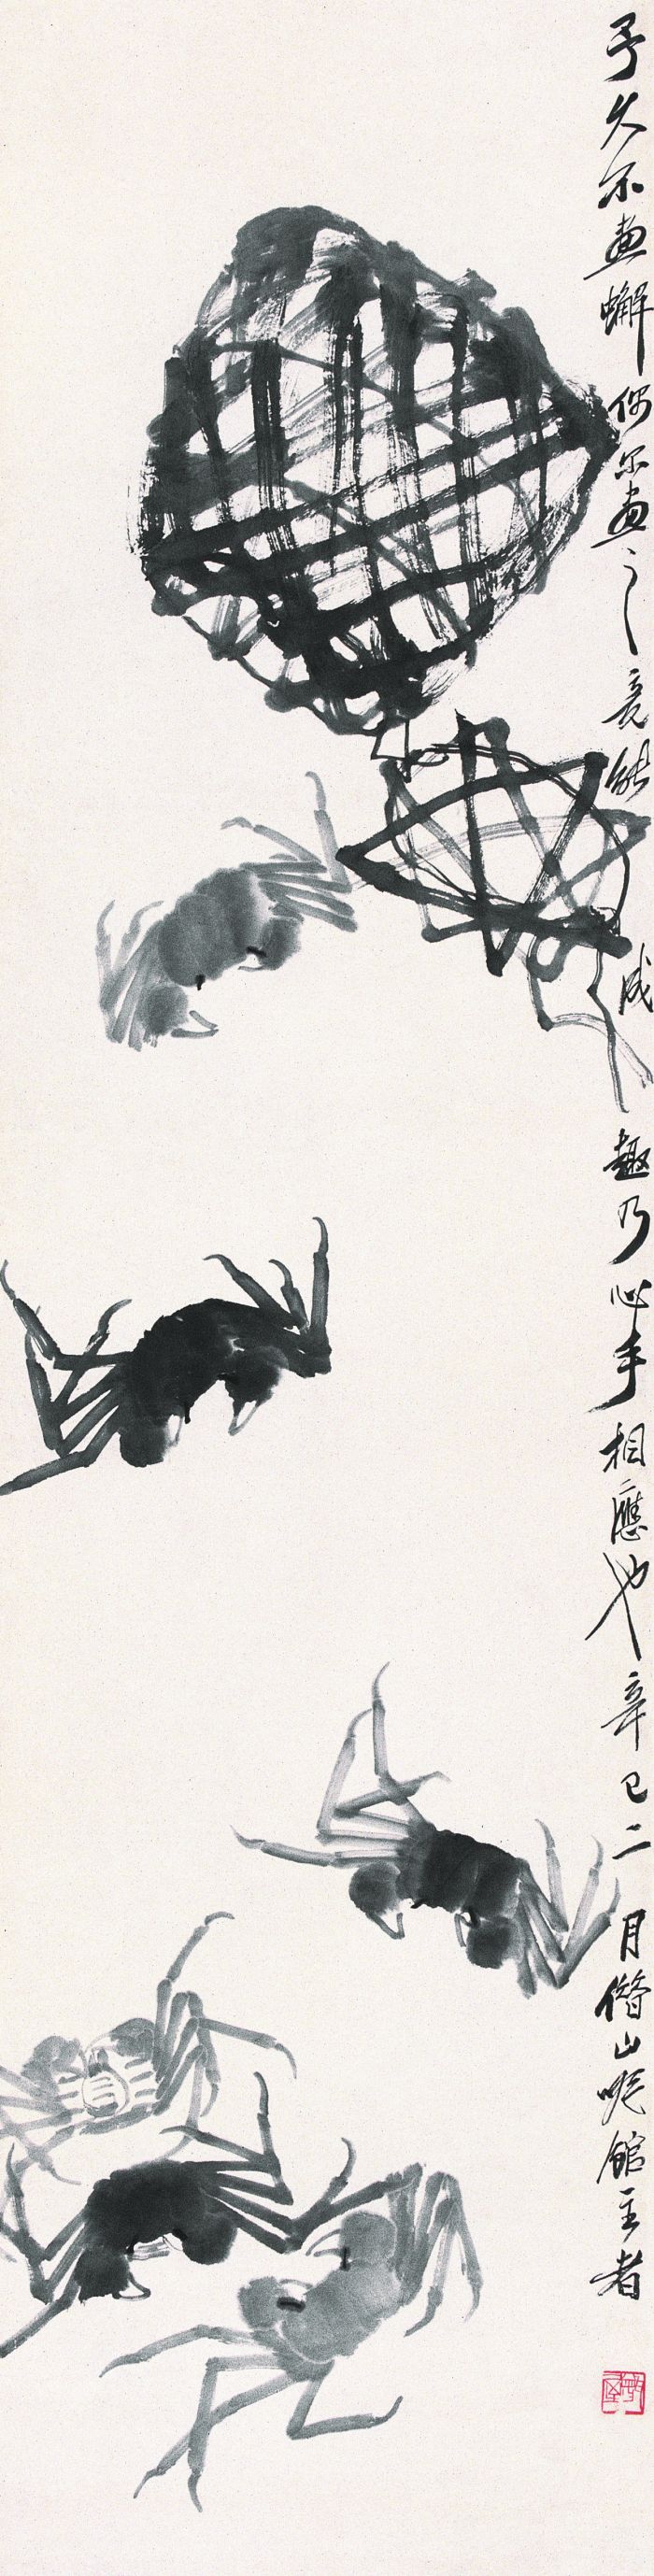 予久不畫蠏偶尔畫之竟能成趣乃心手相應也辛巳二月借山吟館主者